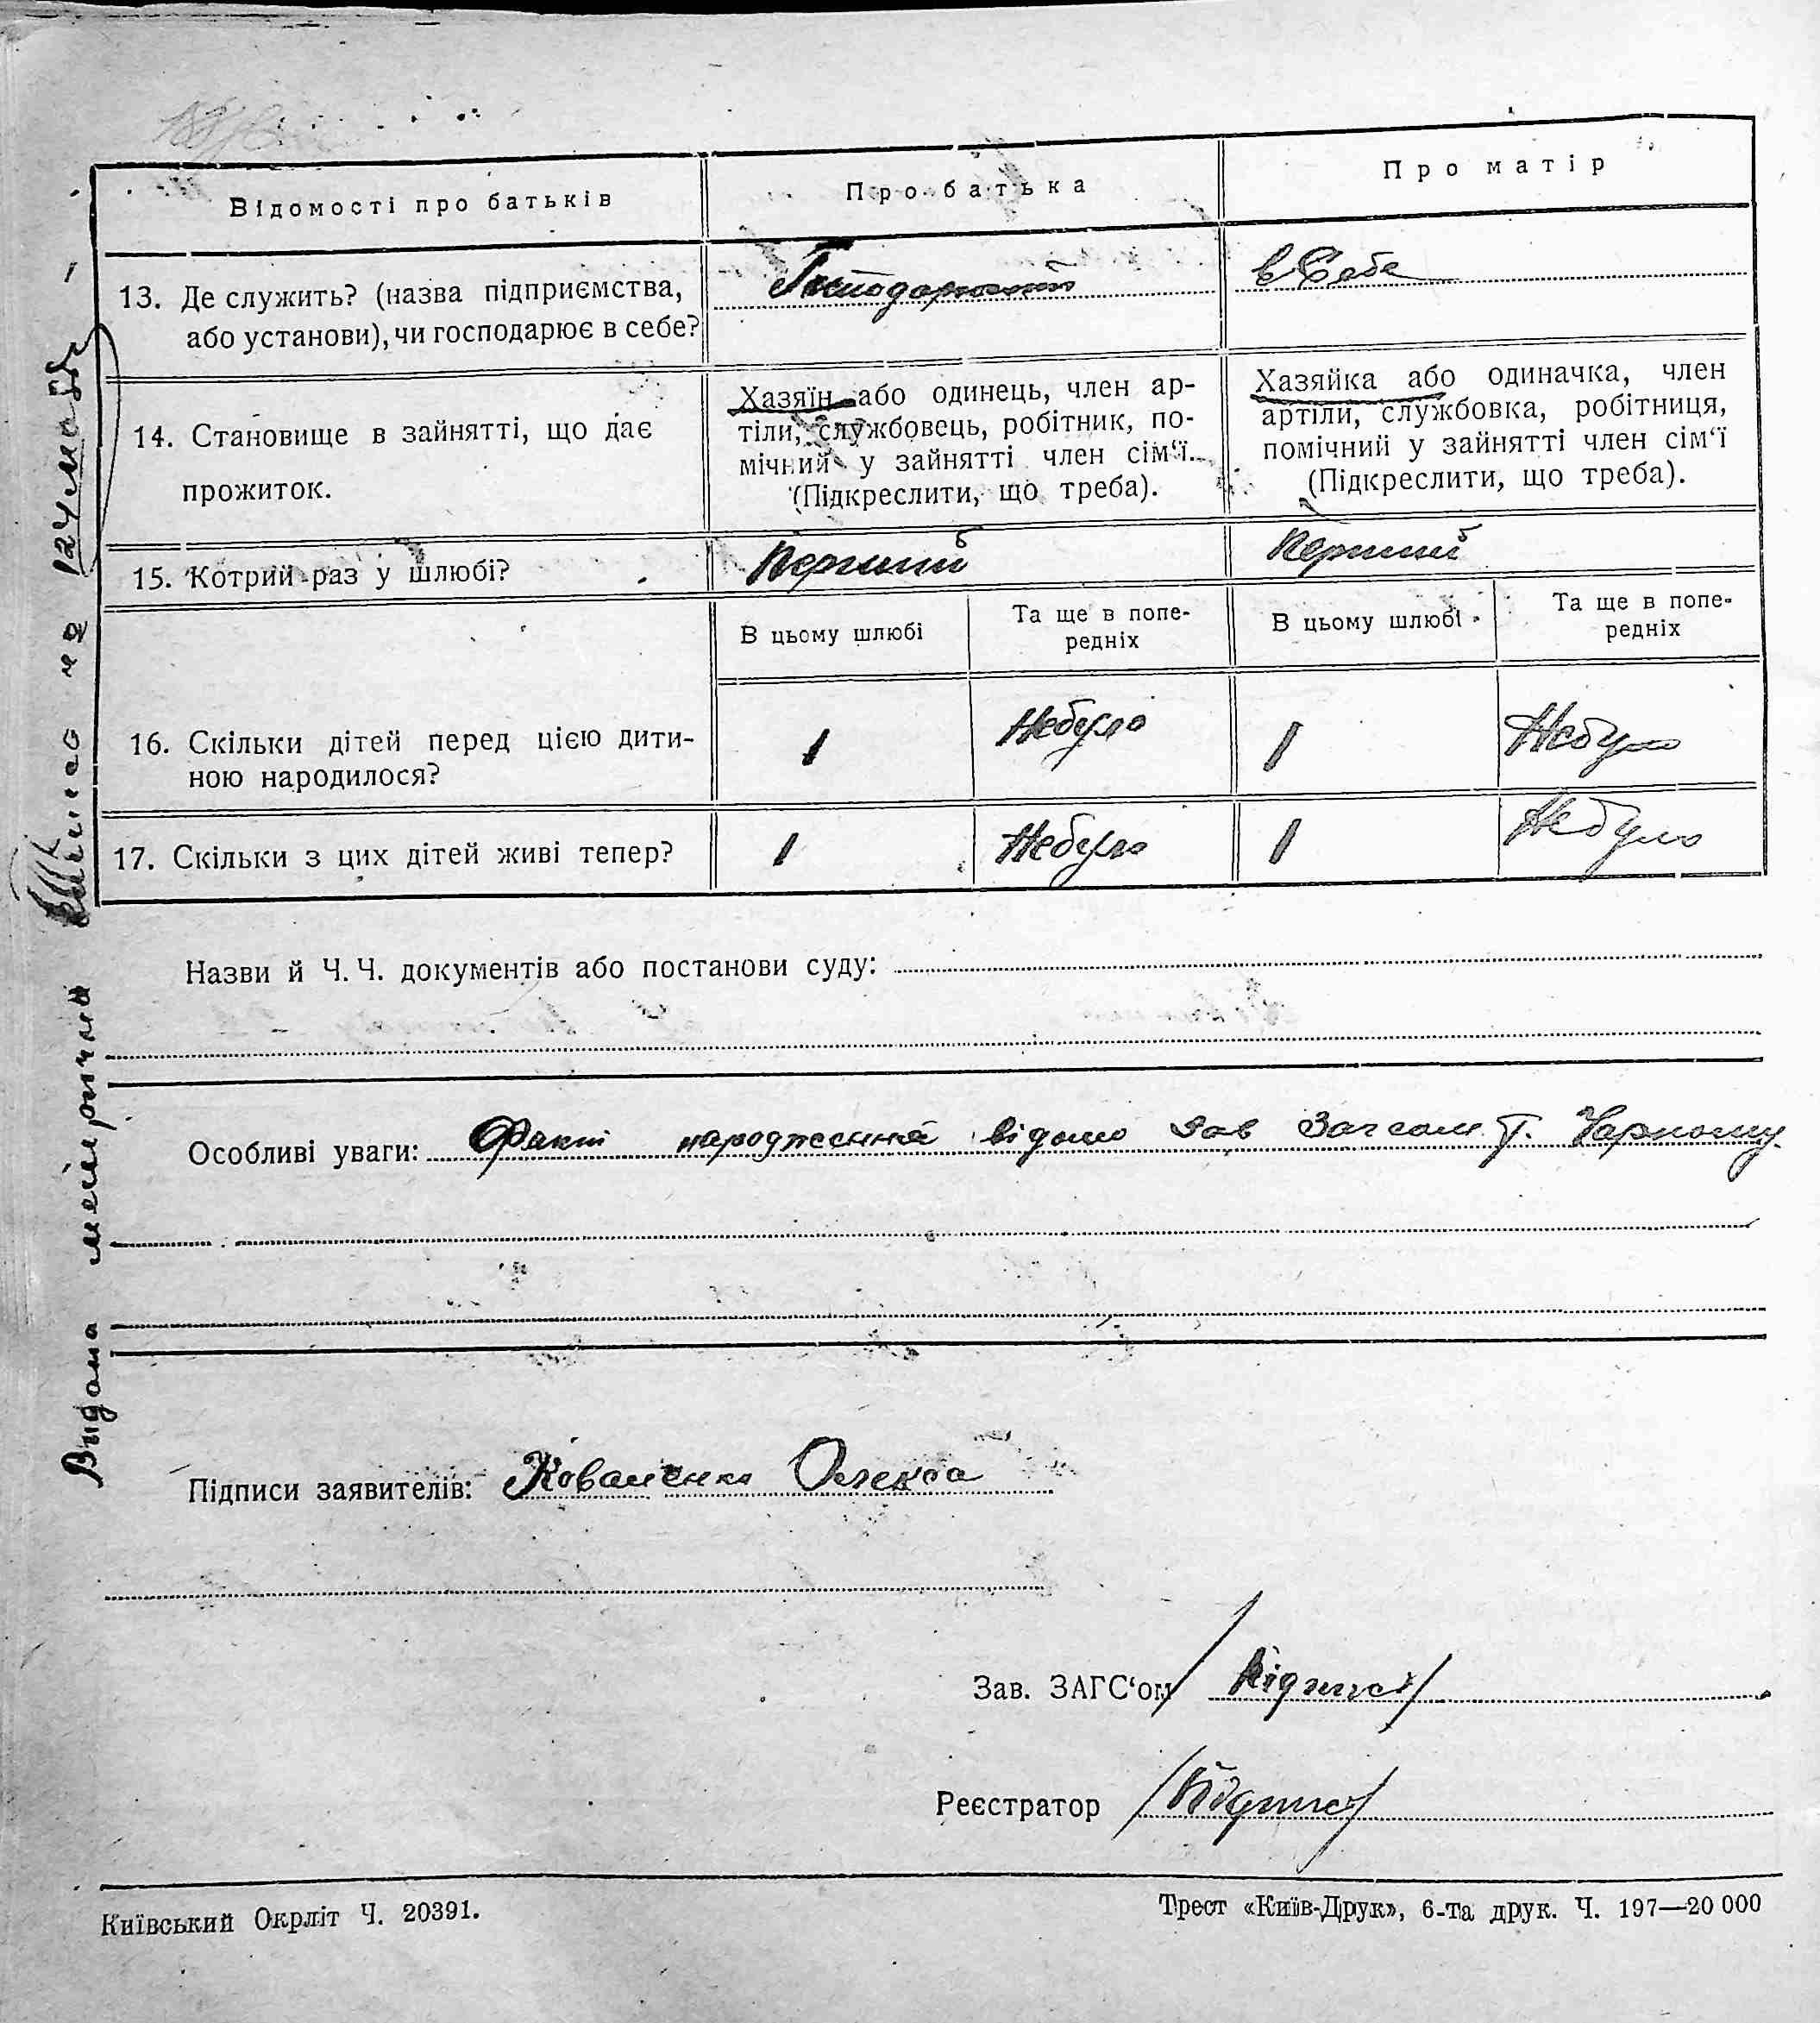 Відомості про батьків
Про батька
Про матір
13. Де служить? (назва підприємства,
або установи), чи господарює в себе?
Господарюють
в Себе
14. Становище в зайнятті, що дає
прожиток.
Хазяїн або одинець, член ар-
тіли, службовець, робітник, по-
мічний у зайнятті член сім‘ї.
(Підкреслити, що треба).
Хазяйка або одиначка, член
артіли, службовка, робітниця,
помічний у зайнятті член сім‘ї
(Підкреслити, що треба).
15. Котрий раз у шлюбі?
Перший
Перший
В цьому шлюбі
Та ще в попе-
редніх
В цьому шлюбі
Та ще в попе-
редніх
16. Скільки дітей перед цією дити-
ною народилося?
1
Небуло
1
Небуло
17. Скільки з цих дітей живі тепер?
1
Небуло
1
Небуло
Назви й Ч. Ч. документів або постанови суду:
Особливі уваги: Факт народження відомо Зав Загсом т. Чарному
Підписи заявителів: Коваленко Олекса
Зав. ЗАГС‘ом /Підпис/
Реєстратор /Підпис/
Київський Окрліт Ч. 20391.
Трест «Київ-Друк», 6-та друк. Ч. 197—20 000
Выдана